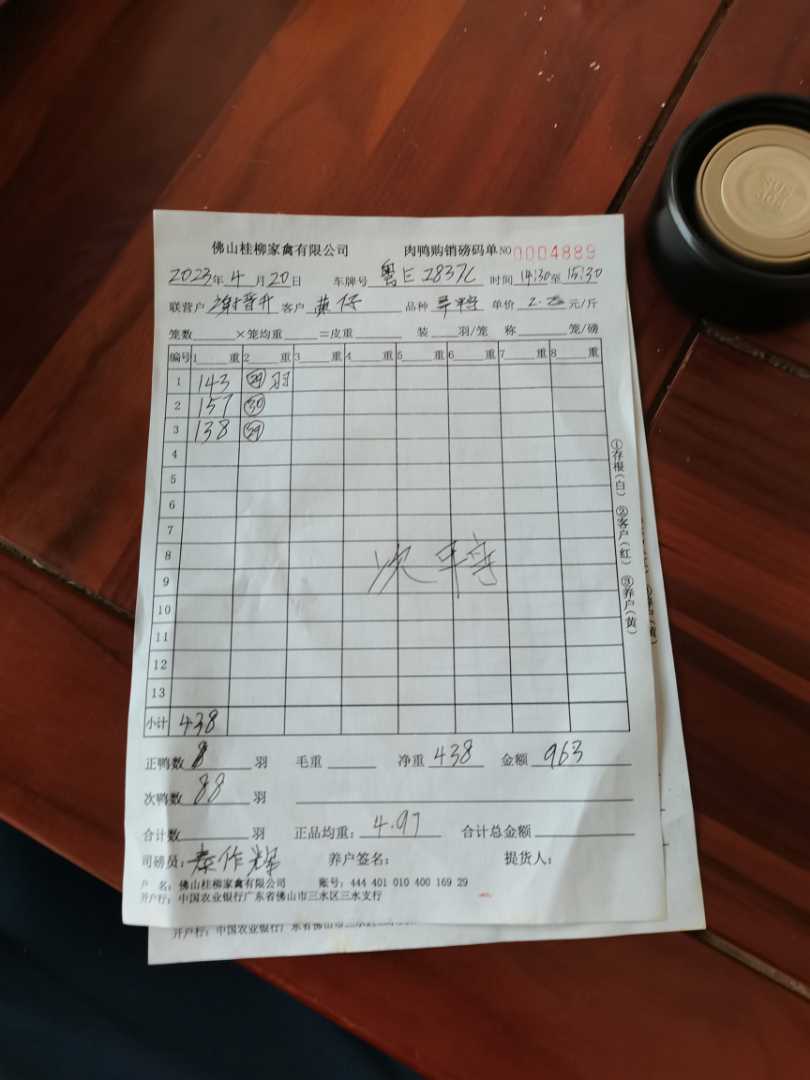 佛山桂柳家禽有限公司 肉鸭购销磅码单 NO 0004889
2023年 4 月 20 日 车牌号 粤E J837C 时间 14:30 至 15:30
联营户 谢晋升 客户 黄仔 品种 单价 2.2 元/斤
笼数 ×笼均重 =皮重 装 羽/笼 称 笼/磅
编号 1 重 2 重 3 重 4 重 5 重 6 重 7 重 8 重
1 143 29 羽
2 157 30
3 138 29
4
5
6
7
8
9
10
11
12
13
次
小计 438
①存根(白) ②客户(红) ③养户(黄)
正鸭数 羽 毛重 净重 438 金额 963
次鸭数 88 羽
合计数 羽 正品均重: 4.97 合计总金额
司磅员: 秦作辉 养户签名: 提货人:
户 名: 佛山桂柳家禽有限公司 账号: 444 401 010 400 169 29
开户行: 中国农业银行广东省佛山市三水区三水支行
开户行: 中国农业银行广东省佛山市三水